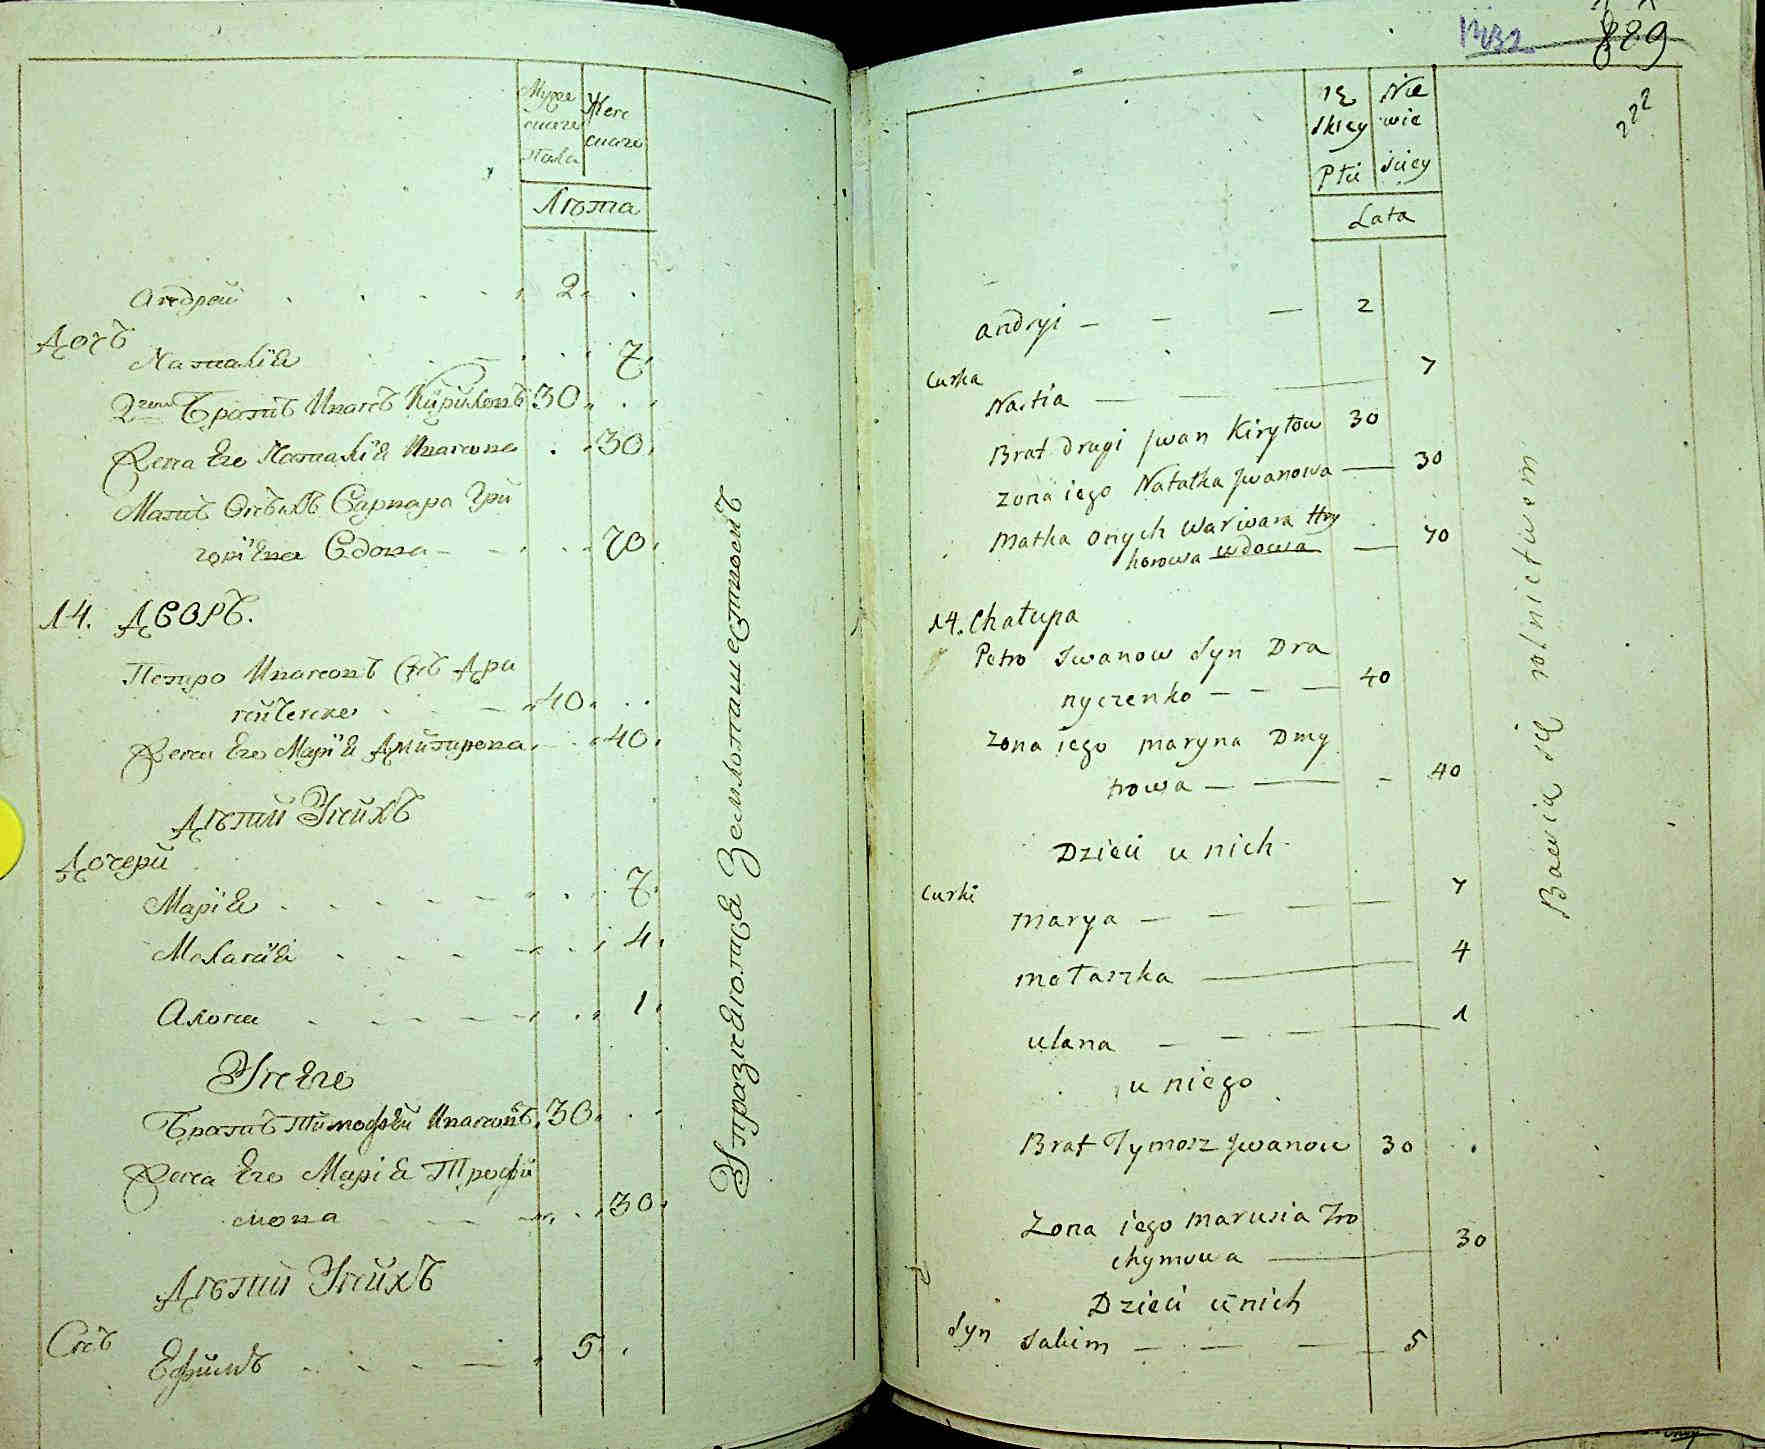 Муже
скаго
пола
Женс
скаго
Лѣта
Андрей 2
Дочь
Наталія 7
2гой Братъ Иванъ Кириловъ 30
Жена Его Наталія Иванова 30
Мать Онѣхъ Варвара Гри
горіева Вдова 70
14. Дворъ.
Петро Ивановъ Снъ Дра
ниченко 40
Жена Его Марія Дмитрова 40
Дѣти Унихъ
Дочери
Марія 7
Меланія 4
Алона 1
Унего
Братъ Тимофей Ивановъ 30
Жена Его Марія Трофи
мова 30
Дѣти Унихъ
Снъ
Ефимъ 5
Упражняются Землепашествомъ
1832 889
222
Mę
skiey
Płci
Nie
wie
sciey
Lata
Andryi 2
Curka
Nastia 7
Brat drugi Jwan Kiryłow 30
Zona iego Natałka Jwanowa 30
Matka onych Warwara Hry
horowa wdowa 70
14. Chałupa
Petro Jwanow Syn Dra
nyczenko 40
Zona iego Maryna Dmy
trowa 40
Dzieci u nich
Curki
Marya 7
Mełaszka 4
Ulana 1
u niego
Brat Tymosz Jwanow 30
Zona iego Marusia Tro
chymowa 30
Dzieci u nich
Syn Jakim 5
Bawią się rolnictwem